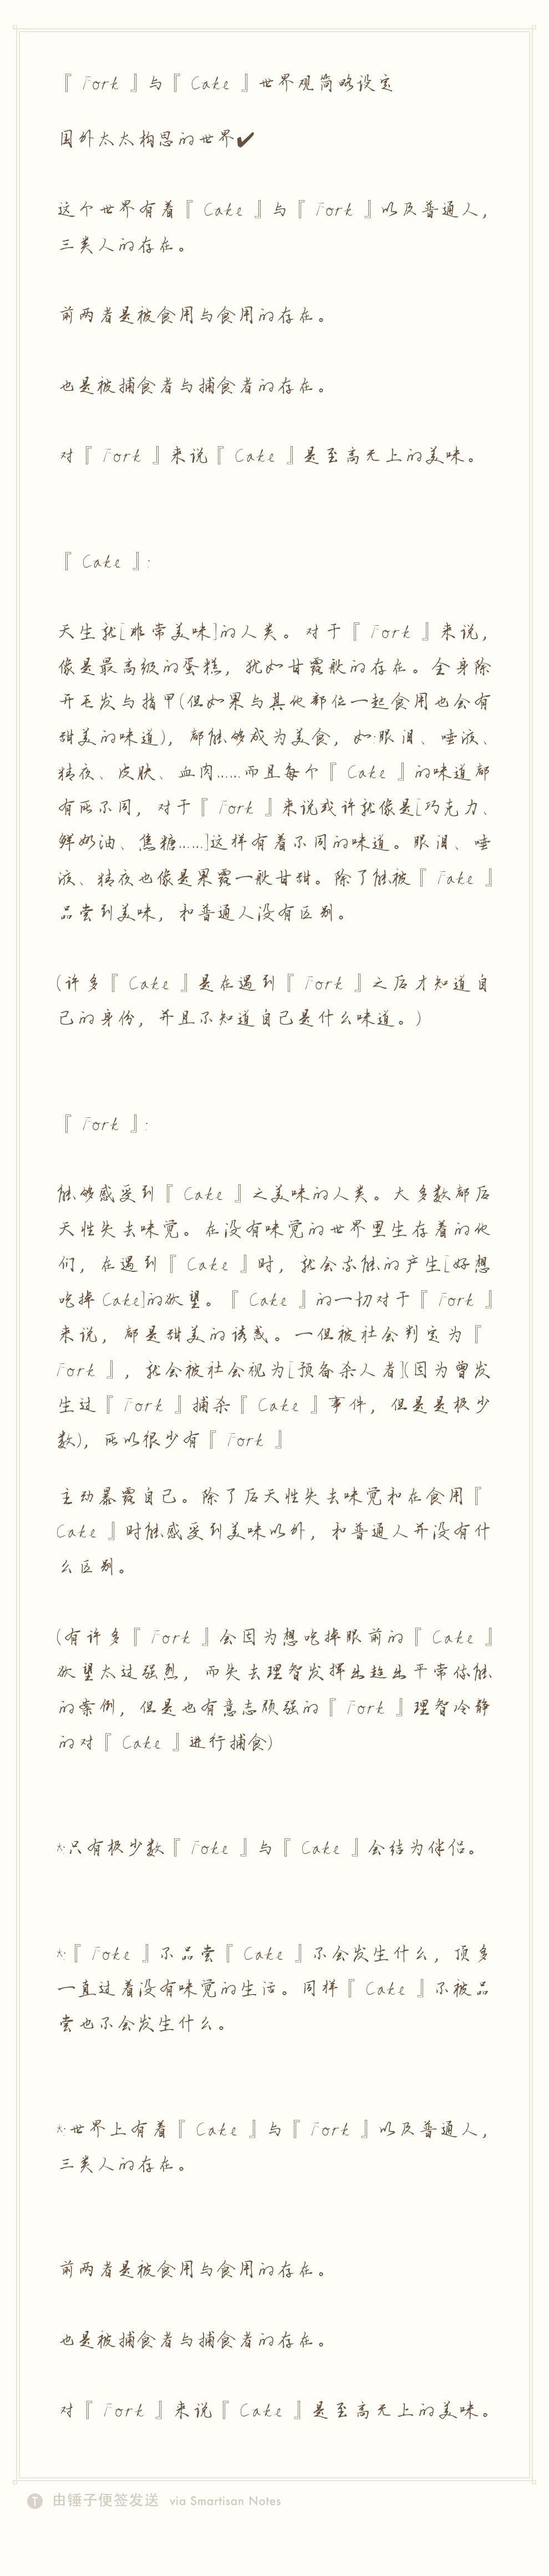 『 Fork 』与『 Cake 』世界观简略设定
国外太太构思的世界✔
这个世界有着『 Cake 』与『 Fork 』以及普通人，
三类人的存在。
前两者是被食用与食用的存在。
也是被捕食者与捕食者的存在。
对『 Fork 』来说『 Cake 』是至高无上的美味。
『 Cake 』:
天生就[非常美味]的人类。对于『 Fork 』来说，
像是最高级的蛋糕，犹如甘露般的存在。全身除
开毛发与指甲(但如果与其他部位一起食用也会有
甜美的味道)，都能够成为美食，如:眼泪、唾液、
精夜、皮肤、血肉……而且每个『 Cake 』的味道都
有所不同，对于『 Fork 』来说或许就像是[巧克力、
鲜奶油、焦糖……]这样有着不同的味道。眼泪、唾
液、精夜也像是果露一般甘甜。除了能被『 Fake 』
品尝到美味，和普通人没有区别。
(许多『 Cake 』是在遇到『 Fork 』之后才知道自
己的身份，并且不知道自己是什么味道。)
『 Fork 』:
能够感受到『 Cake 』之美味的人类。大多数都后
天性失去味觉。在没有味觉的世界里生存着的他
们，在遇到『 Cake 』时，就会本能的产生[好想
吃掉 Cake]的欲望。『 Cake 』的一切对于『 Fork 』
来说，都是甜美的诱惑。一但被社会判定为『
Fork 』，就会被社会视为[预备杀人者](因为曾发
生过『 Fork 』捕杀『 Cake 』事件，但是是极少
数)，所以很少有『 Fork 』
主动暴露自己。除了后天性失去味觉和在食用『
Cake 』时能感受到美味以外，和普通人并没有什
么区别。
(有许多『 Fork 』会因为想吃掉眼前的『 Cake 』
欲望太过强烈，而失去理智发挥出超出平常体能
的案例，但是也有意志顽强的『 Fork 』理智冷静
的对『 Cake 』进行捕食)
大·只有极少数『 Foke 』与『 Cake 』会结为伴侣。
大·『 Foke 』不品尝『 Cake 』不会发生什么，顶多
一直过着没有味觉的生活。同样『 Cake 』不被品
尝也不会发生什么。
大·世界上有着『 Cake 』与『 Fork 』以及普通人，
三类人的存在。
前两者是被食用与食用的存在。
也是被捕食者与捕食者的存在。
对『 Fork 』来说『 Cake 』是至高无上的美味。
T 由锤子便签发送 via Smartisan Notes